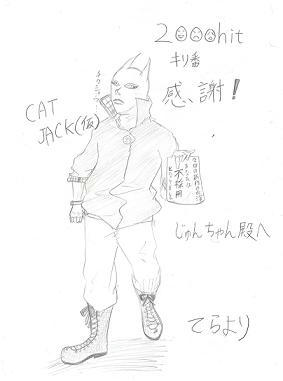 2000hit
キリ番
感謝！
CAT
JACK(仮)
不採用
じゅんちゃん殿へ
てらより